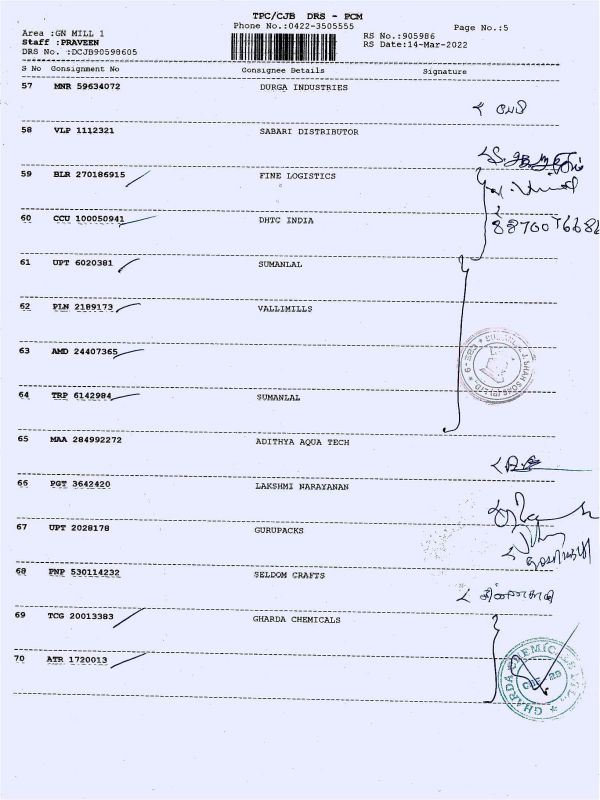 TPC/CJB DRS - PCM
Phone No.:0422-3505555
Page No.:5
Area :GN MILL 1
RS No.:905986
Staff :PRAVEEN
RS Date:14-Mar-2022
DRS No. :DCJB90598605
S No Consignment No Consignee Details Signature
57 MNR 59634072 DURGA INDUSTRIES
58 VLP 1112321 SABARI DISTRIBUTOR
59 BLR 270186915 FINE LOGISTICS
60 CCU 100050941 DHTC INDIA
61 UPT 6020381 SUMANLAL
62 PLN 2189173 VALLIMILLS
63 AMD 24407365
64 TRP 6142984 SUMANLAL
65 MAA 284992272 ADITHYA AQUA TECH
66 PGT 3642420 LAKSHMI NARAYANAN
67 UPT 2028178 GURUPACKS
68 PNP 530114232 SELDOM CRAFTS
69 TCG 20013383 GHARDA CHEMICALS
70 ATR 1720013
GHARDA CHEMICALS LTD.